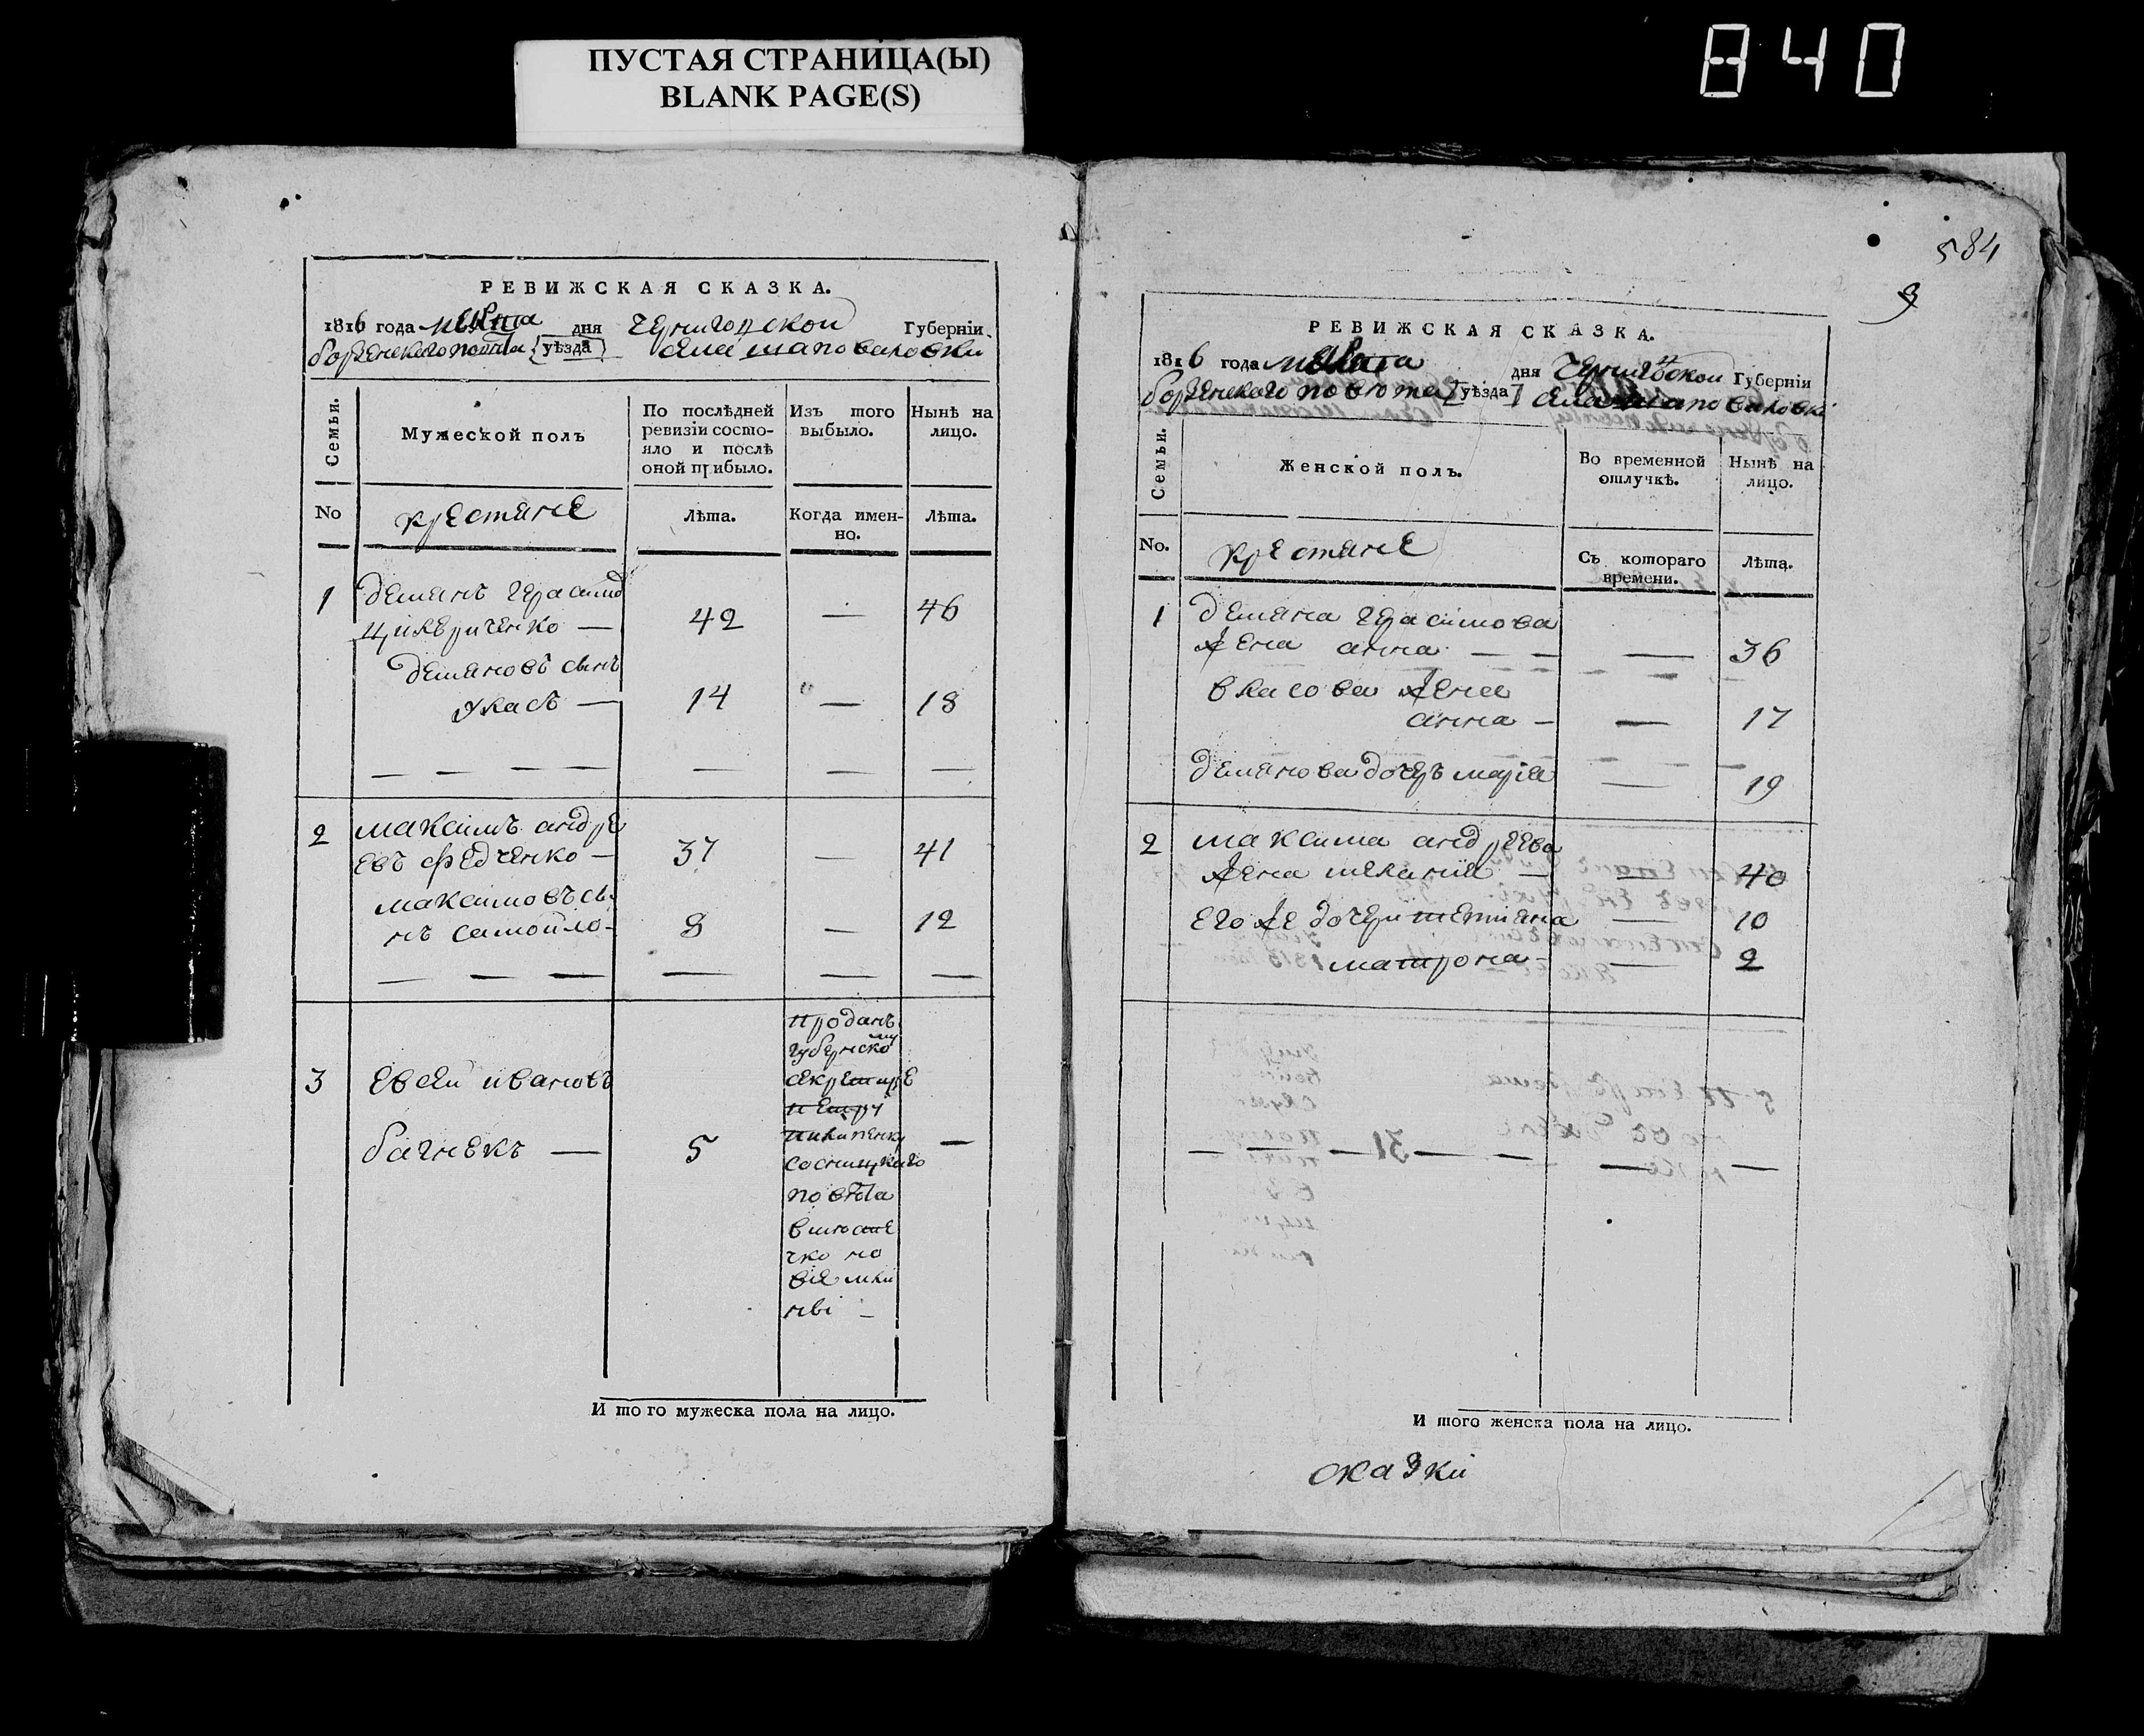 ПУСТАЯ СТРАНИЦА(Ы)
BLANK PAGE(S)
840
РЕВИЖСКАЯ СКАЗКА.
1816 года дня Черниговской Губерніи
борзенскаго повѣта (уѣзда) села шаповаловки
Семьи.
Мужеской полъ
По послѣдней ревизіи состояло и послѣ оной прибыло.
Изъ того выбыло.
Нынѣ на лицо.
No
крестяне
Лѣта.
Когда именно.
Лѣта.
1 демянъ герасимо
— 42 — 46
демяновъ сынъ
— 14 — 18
2 максимъ андре
евъ федченко — 37 — 41
максимовъ сы
нъ самойло — 8 — 12
3 евсей ивановъ
— 5
проданъ
губернско
му
секретаре
петру
сосницкаго
повѣта
—
И того мужеска пола на лицо.
584
9
РЕВИЖСКАЯ СКАЗКА.
1816 года дня Черниговской Губерніи
борзенского повюта [уѣзда] села шаповаловки
Семьи.
Женской полъ.
Во временной отлучкѣ.
Нынѣ на лицо.
No.
крестяне
Съ котораго времени.
Лѣта.
1 демяна герасимова
жена анна — — 36
власова жена
анна — — 17
демянова дочеръ марія — 19
2 максима андреева
жена — — 40
его же дочери тетияна — 10
матрона — — 2
И того женска пола на лицо.
сказки